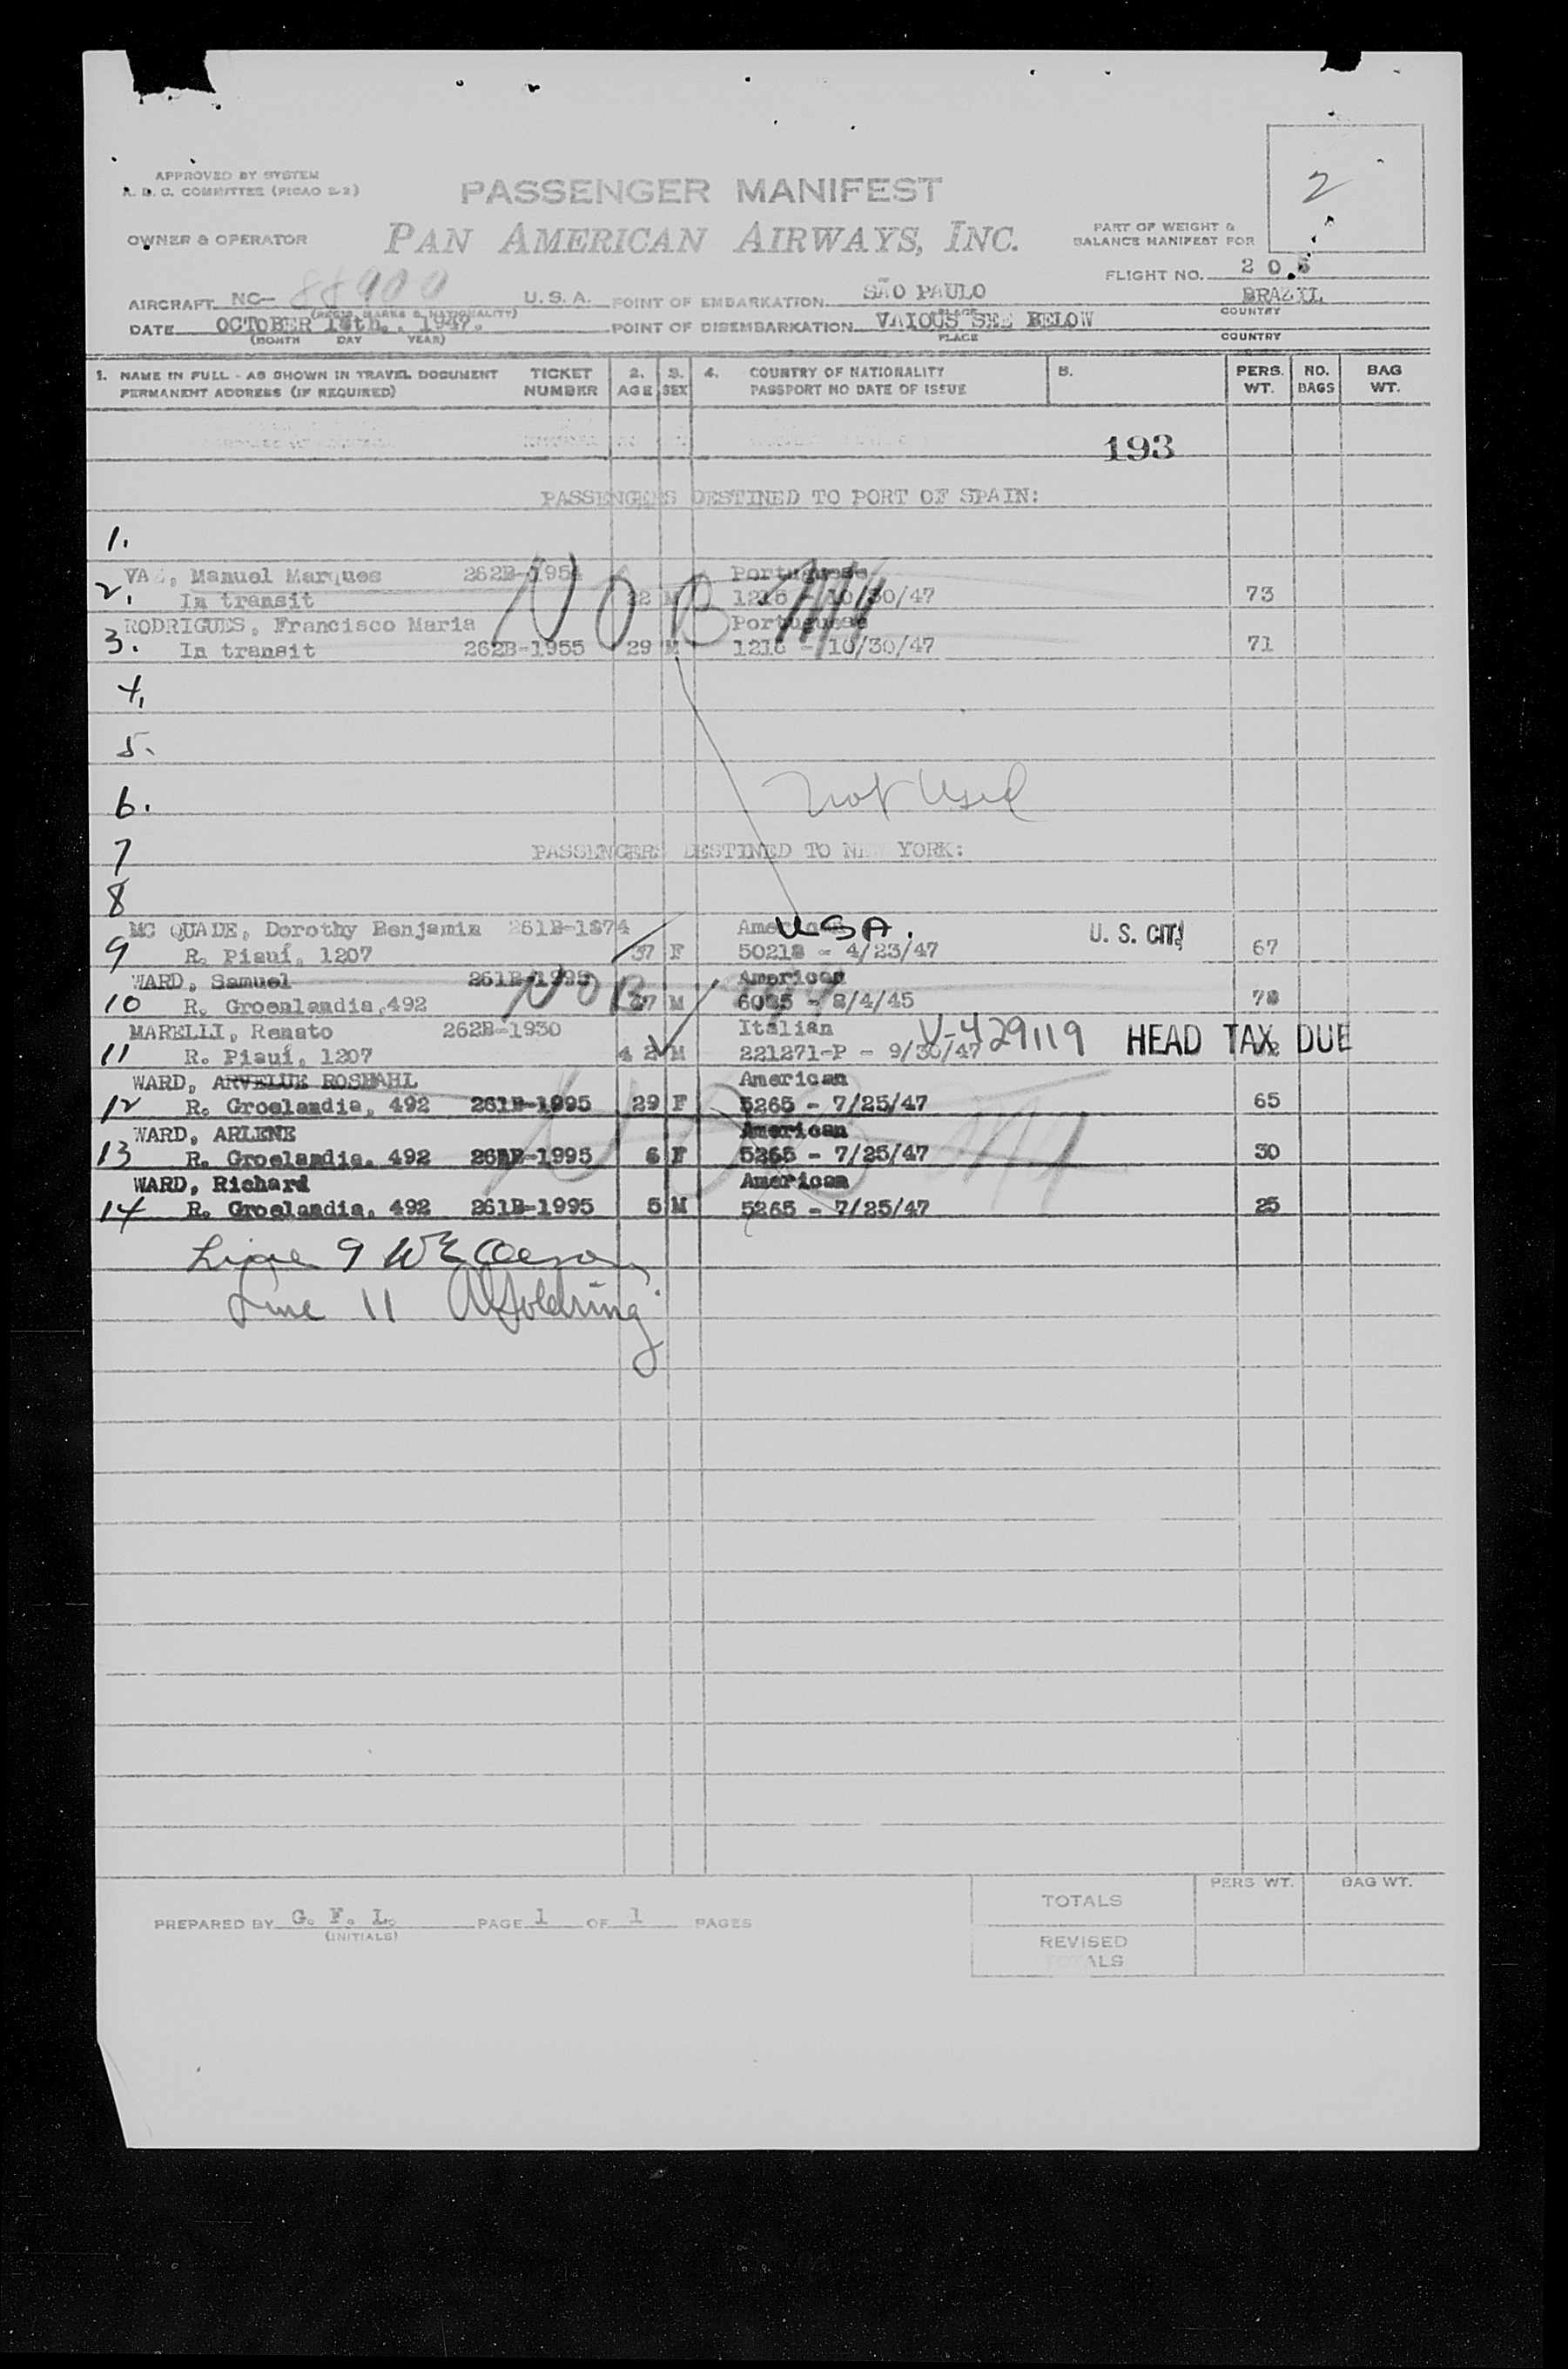 2
APPROVED BY SYSTEM
A. D. C. COMMITTEE (PICAO 2-2)
PASSENGER MANIFEST
OWNER & OPERATOR
PAN AMERICAN AIRWAYS, INC.
PART OF WEIGHT &
BALANCE MANIFEST FOR
FLIGHT NO. 205
AIRCRAFT NC- 88900 U.S.A. POINT OF EMBARKATION SÃO PAULO BRAZIL
(REGIS. MARKS & NATIONALITY) PLACE COUNTRY
DATE OCTOBER 1947. POINT OF DISEMBARKATION VAIOUS SEE BELOW
(MONTH DAY YEAR) PLACE COUNTRY
1. NAME IN FULL - AS SHOWN IN TRAVEL DOCUMENT TICKET 2. 3. 4. COUNTRY OF NATIONALITY 5. PERS. NO. BAG
PERMANENT ADDRESS (IF REQUIRED) NUMBER AGE SEX PASSPORT NO DATE OF ISSUE WT. BAGS WT.
193
PASSENGERS DESTINED TO PORT OF SPAIN:
1.
VAZ, Manuel Marques 262B-1954 Portuguese
2. In transit M 1216 - 10/30/47 73
NOB
RODRIGUES, Francisco Maria Portuguese
3. In transit 262B-1955 29 M 1216 - 10/30/47 71
4.
5.
6. Not Used
7 PASSENGERS DESTINED TO NEW YORK:
8
MC QUADE, Dorothy Benjamin 261B-1874 American USA. U. S. CIT.
9 R. Piauí, 1207 37 F 50218 - 4/23/47 67
WARD, Samuel 261B-1995 NOB American
10 R. Groenlandia,492 M 6085 - 8/4/45 78
MARELLI, Renato 262B-1930 Italian V-429119 HEAD TAX DUE
11 R. Piauí, 1207 42 M 221271-P - 9/30/47
WARD, ARVELUE ROSDAHL American
12 R. Groelandia, 492 261B-1995 29 F 5265 - 7/25/47 65
WARD, ARLENE American
13 R. Groelandia. 492 261B-1995 6 F 5265 - 7/25/47 30
NOB
WARD, Richard American
14 R. Groelandia. 492 261B-1995 5 M 5265 - 7/25/47 25
Line 9
Line 11 Goldring
PERS WT. BAG WT.
TOTALS
PREPARED BY G. F. L. PAGE 1 OF 1 PAGES
(INITIALS)
REVISED
TOTALS